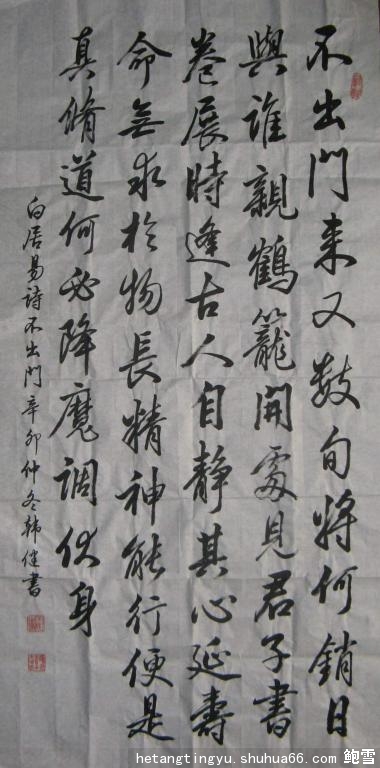 不出門来又數旬將何銷日
與誰親鶴籠開處見君子書
卷展時逢古人自静其心延壽
命無求於物長精神能行便是
真脩道何必降魔調伏身
白居易詩不出門辛卯仲冬韩健書
hetangtingyu.shuhua66.com 鲍雪